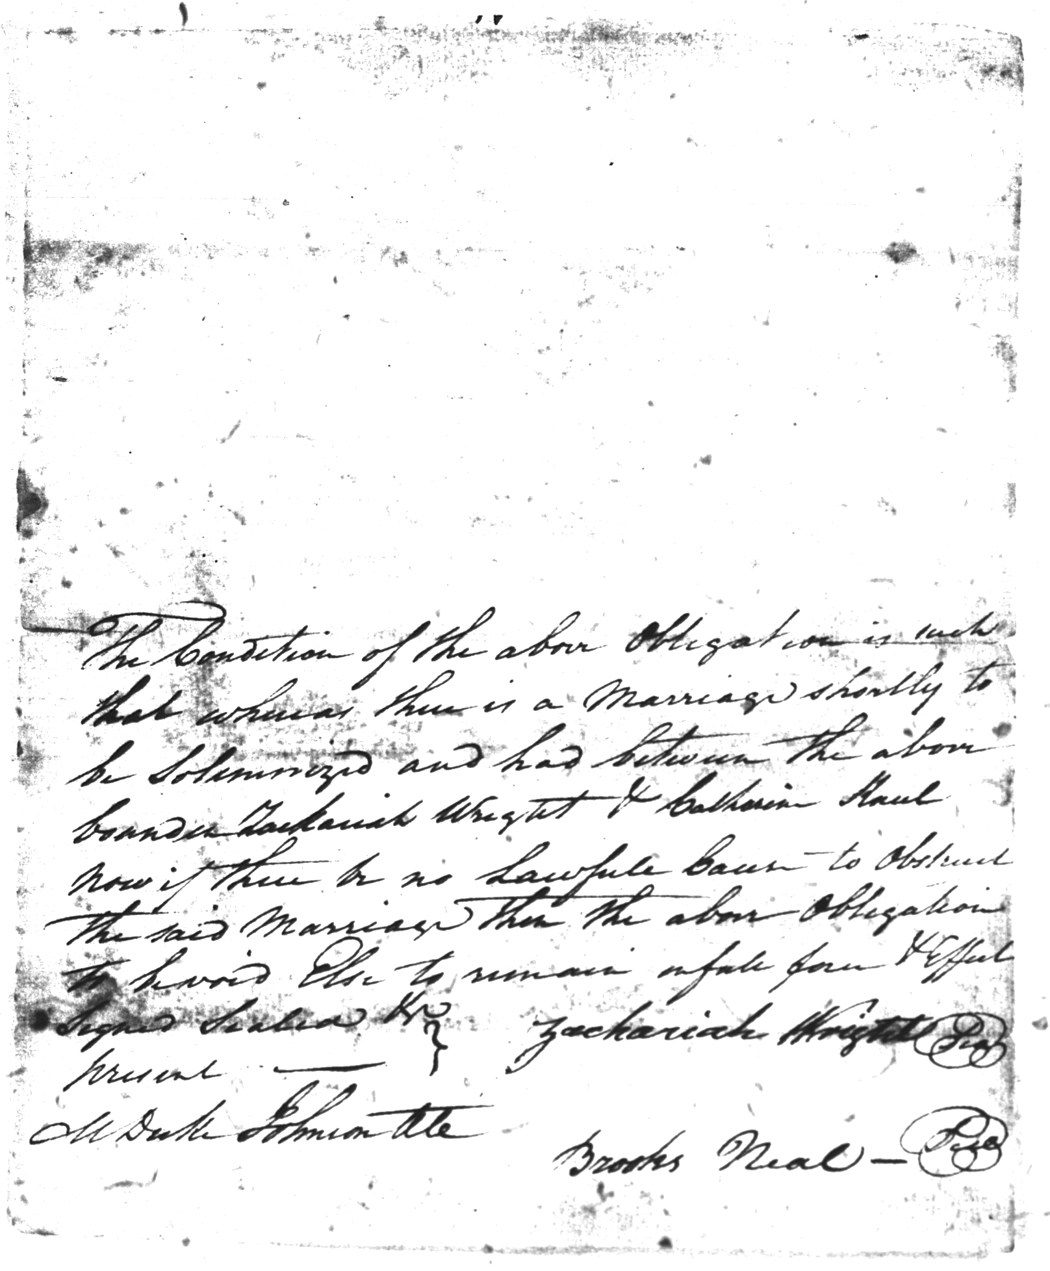 The Condition of the above Obligation is such
that whereas there is a Marriage shortly to
be Solemnized and had between the above
bounden Zachariah Wright & Catherine Haul
Now if there be no Lawfule Cause to Obstruct
the said Marriage then the above Obligation
to be void Else to remain in full force & Effect
Signed Sealed &c
present
M Duke Johnson
Zachariah Wright Seal
Brooks Neal — Seal